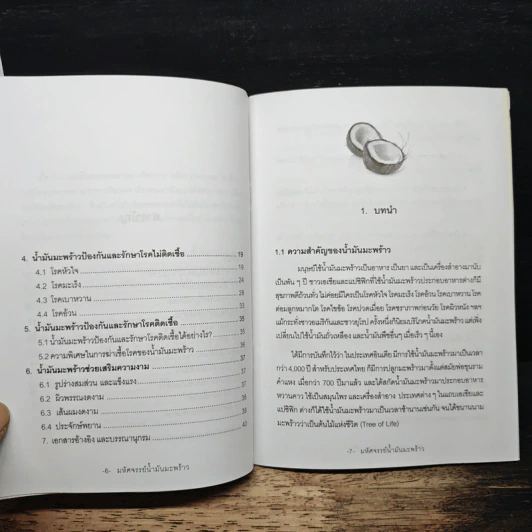 4. น้ำมันมะพร้าวป้องกันและรักษาโรคไม่ติดเชื้อ 19
4.1 โรคหัวใจ 19
4.2 โรคมะเร็ง 24
4.3 โรคเบาหวาน 28
4.4 โรคอ้วน
5. น้ำมันมะพร้าวป้องกันและรักษาโรคติดเชื้อ
5.1 น้ำมันมะพร้าวป้องกันและรักษาโรคติดเชื้อได้อย่างไร?
5.2 ความพิเศษในการฆ่าเชื้อโรคของน้ำมันมะพร้าว
6. น้ำมันมะพร้าวช่วยเสริมความงาม
6.1 รูปร่างสมส่วน และแข็งแรง
6.2 ผิวพรรณงดงาม
6.3 เส้นผมงดงาม
6.4 ประจักษ์พยาน
7. เอกสารอ้างอิง และบรรณานุกรม 40
-6- มหัศจรรย์น้ำมันมะพร้าว
1. บทนำ
1.1 ความสำคัญของน้ำมันมะพร้าว
มนุษย์ใช้น้ำมันมะพร้าวเป็นอาหาร เป็นยา และเป็นเครื่องสำอางมานับ
เป็นพัน ๆ ปี ชาวเอเชียและแปซิฟิกที่ใช้น้ำมันมะพร้าวประกอบอาหารต่างก็มี
สุขภาพดีถ้วนทั่ว ไม่ค่อยมีใครเป็นโรคหัวใจ โรคมะเร็ง โรคอ้วน โรคเบาหวาน โรค
ต่อมลูกหมากโต โรคไขข้อ โรคปวดเมื่อย โรคชราภาพก่อนวัย โรคผิวหนัง ฯลฯ
แม้กระทั่งชาวอเมริกันและชาวยุโรป ครั้งหนึ่งก็นิยมบริโภคน้ำมันมะพร้าว แต่เพิ่ง
เปลี่ยนไปใช้น้ำมันถั่วเหลือง และน้ำมันพืชอื่นๆ เมื่อเร็ว ๆ นี้เอง
ได้มีการบันทึกไว้ว่า ในประเทศอินเดีย มีการใช้น้ำมันมะพร้าวมาเป็นเวลา
กว่า 4,000 ปี สำหรับประเทศไทย ก็มีการปลูกมะพร้าวมาตั้งแต่สมัยพ่อขุนราม
คำแหง เมื่อกว่า 700 ปีมาแล้ว และได้สกัดน้ำมันมะพร้าวมาประกอบอาหาร
หวานคาว ใช้เป็นสมุนไพร และเครื่องสำอาง ประเทศต่าง ๆ ในแถบเอเชียและ
แปซิฟิก ต่างก็ได้ใช้น้ำมันมะพร้าวมาเป็นเวลาช้านานเช่นกัน จนได้ขนานนาม
มะพร้าวว่าเป็นต้นไม้แห่งชีวิต (Tree of Life)
-7- มหัศจรรย์น้ำมันมะพร้าว